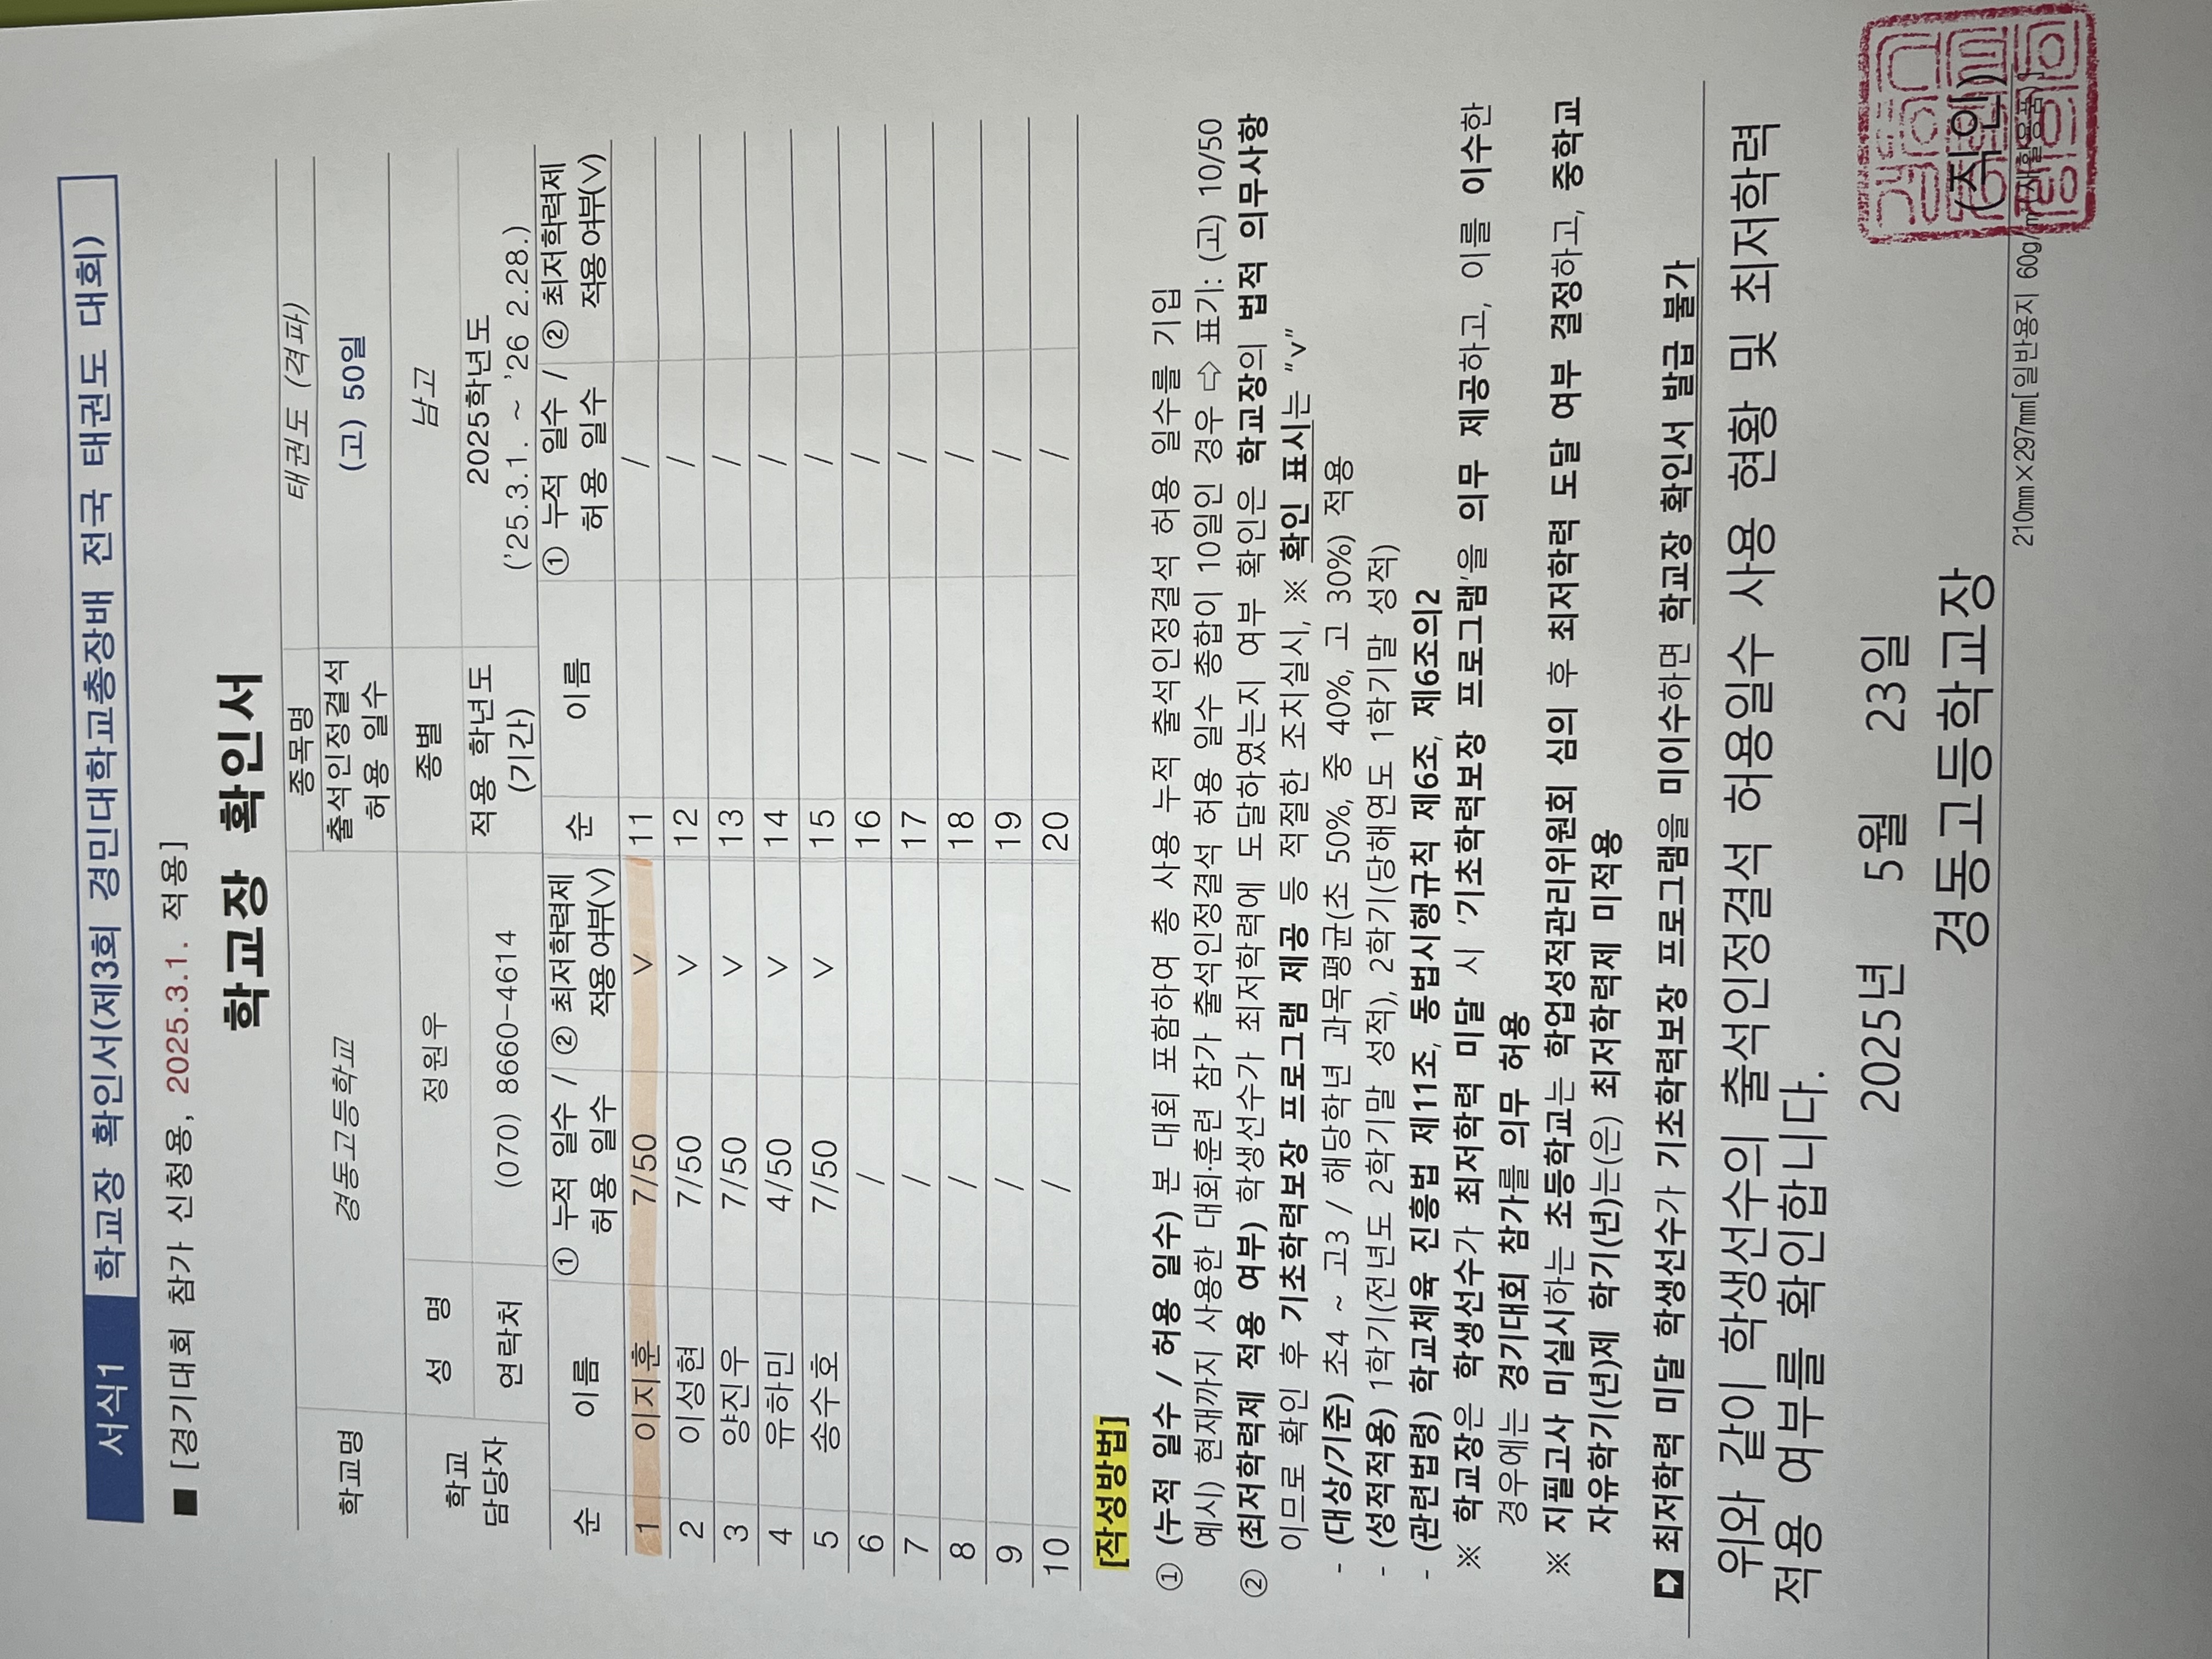 서식1 학교장 확인서(제3회 경민대학교총장배 전국 태권도 대회)
■ [경기대회 참가 신청용, 2025.3.1. 적용]
학교장 확인서
학교명 경동고등학교 종목명 태권도 (격파)
출석인정결석 허용 일수 (고) 50일
학교 담당자 성 명 정원우 종별 남고
연락처 (070) 8660-4614 적용 학년도 (기간) 2025학년도 ('25.3.1. ~ '26 2.28.)
순 이름 ① 누적 일수 / 허용 일수 ② 최저학력제 적용여부(V) 순 이름 ① 누적 일수 / 허용 일수 ② 최저학력제 적용여부(V)
1 이지훈 7/50 V 11 /
2 이성현 7/50 V 12 /
3 양진우 7/50 V 13 /
4 유하민 4/50 V 14 /
5 송수호 7/50 V 15 /
6 / 16 /
7 / 17 /
8 / 18 /
9 / 19 /
10 / 20 /
[작성방법]
① (누적 일수 / 허용 일수) 본 대회 포함하여 총 사용 누적 출석인정결석 허용 일수를 기입
예시) 현재까지 사용한 대회·훈련 참가 출석인정결석 허용 일수 총합이 10일인 경우 ⇨ 표기: (고) 10/50
② (최저학력제 적용 여부) 학생선수가 최저학력에 도달하였는지 여부 확인은 학교장의 법적 의무사항
이므로 확인 후 기초학력보장 프로그램 제공 등 적절한 조치실시, ※ 확인 표시는 "v"
- (대상/기준) 초4 ~ 고3 / 해당학년 과목평균(초 50%, 중 40%, 고 30%) 적용
- (성적적용) 1학기(전년도 2학기말 성적), 2학기(당해연도 1학기말 성적)
- (관련법령) 학교체육 진흥법 제11조, 동법시행규칙 제6조, 제6조의2
※ 학교장은 학생선수가 최저학력 미달 시 '기초학력보장 프로그램'을 의무 제공하고, 이를 이수한
경우에는 경기대회 참가를 의무 허용
※ 지필고사 미실시하는 초등학교는 학업성적관리위원회 심의 후 최저학력 도달 여부 결정하고, 중학교
자유학기(년)제 학기(년)는(은) 최저학력제 미적용
➡ 최저학력 미달 학생선수가 기초학력보장 프로그램을 미이수하면 학교장 확인서 발급 불가
위와 같이 학생선수의 출석인정결석 허용일수 사용 현황 및 최저학력
적용 여부를 확인합니다.
2025년 5월 23일
경동고등학교장 (직인)
210㎜×297㎜[일반용지 60g/㎡(재활용품)]